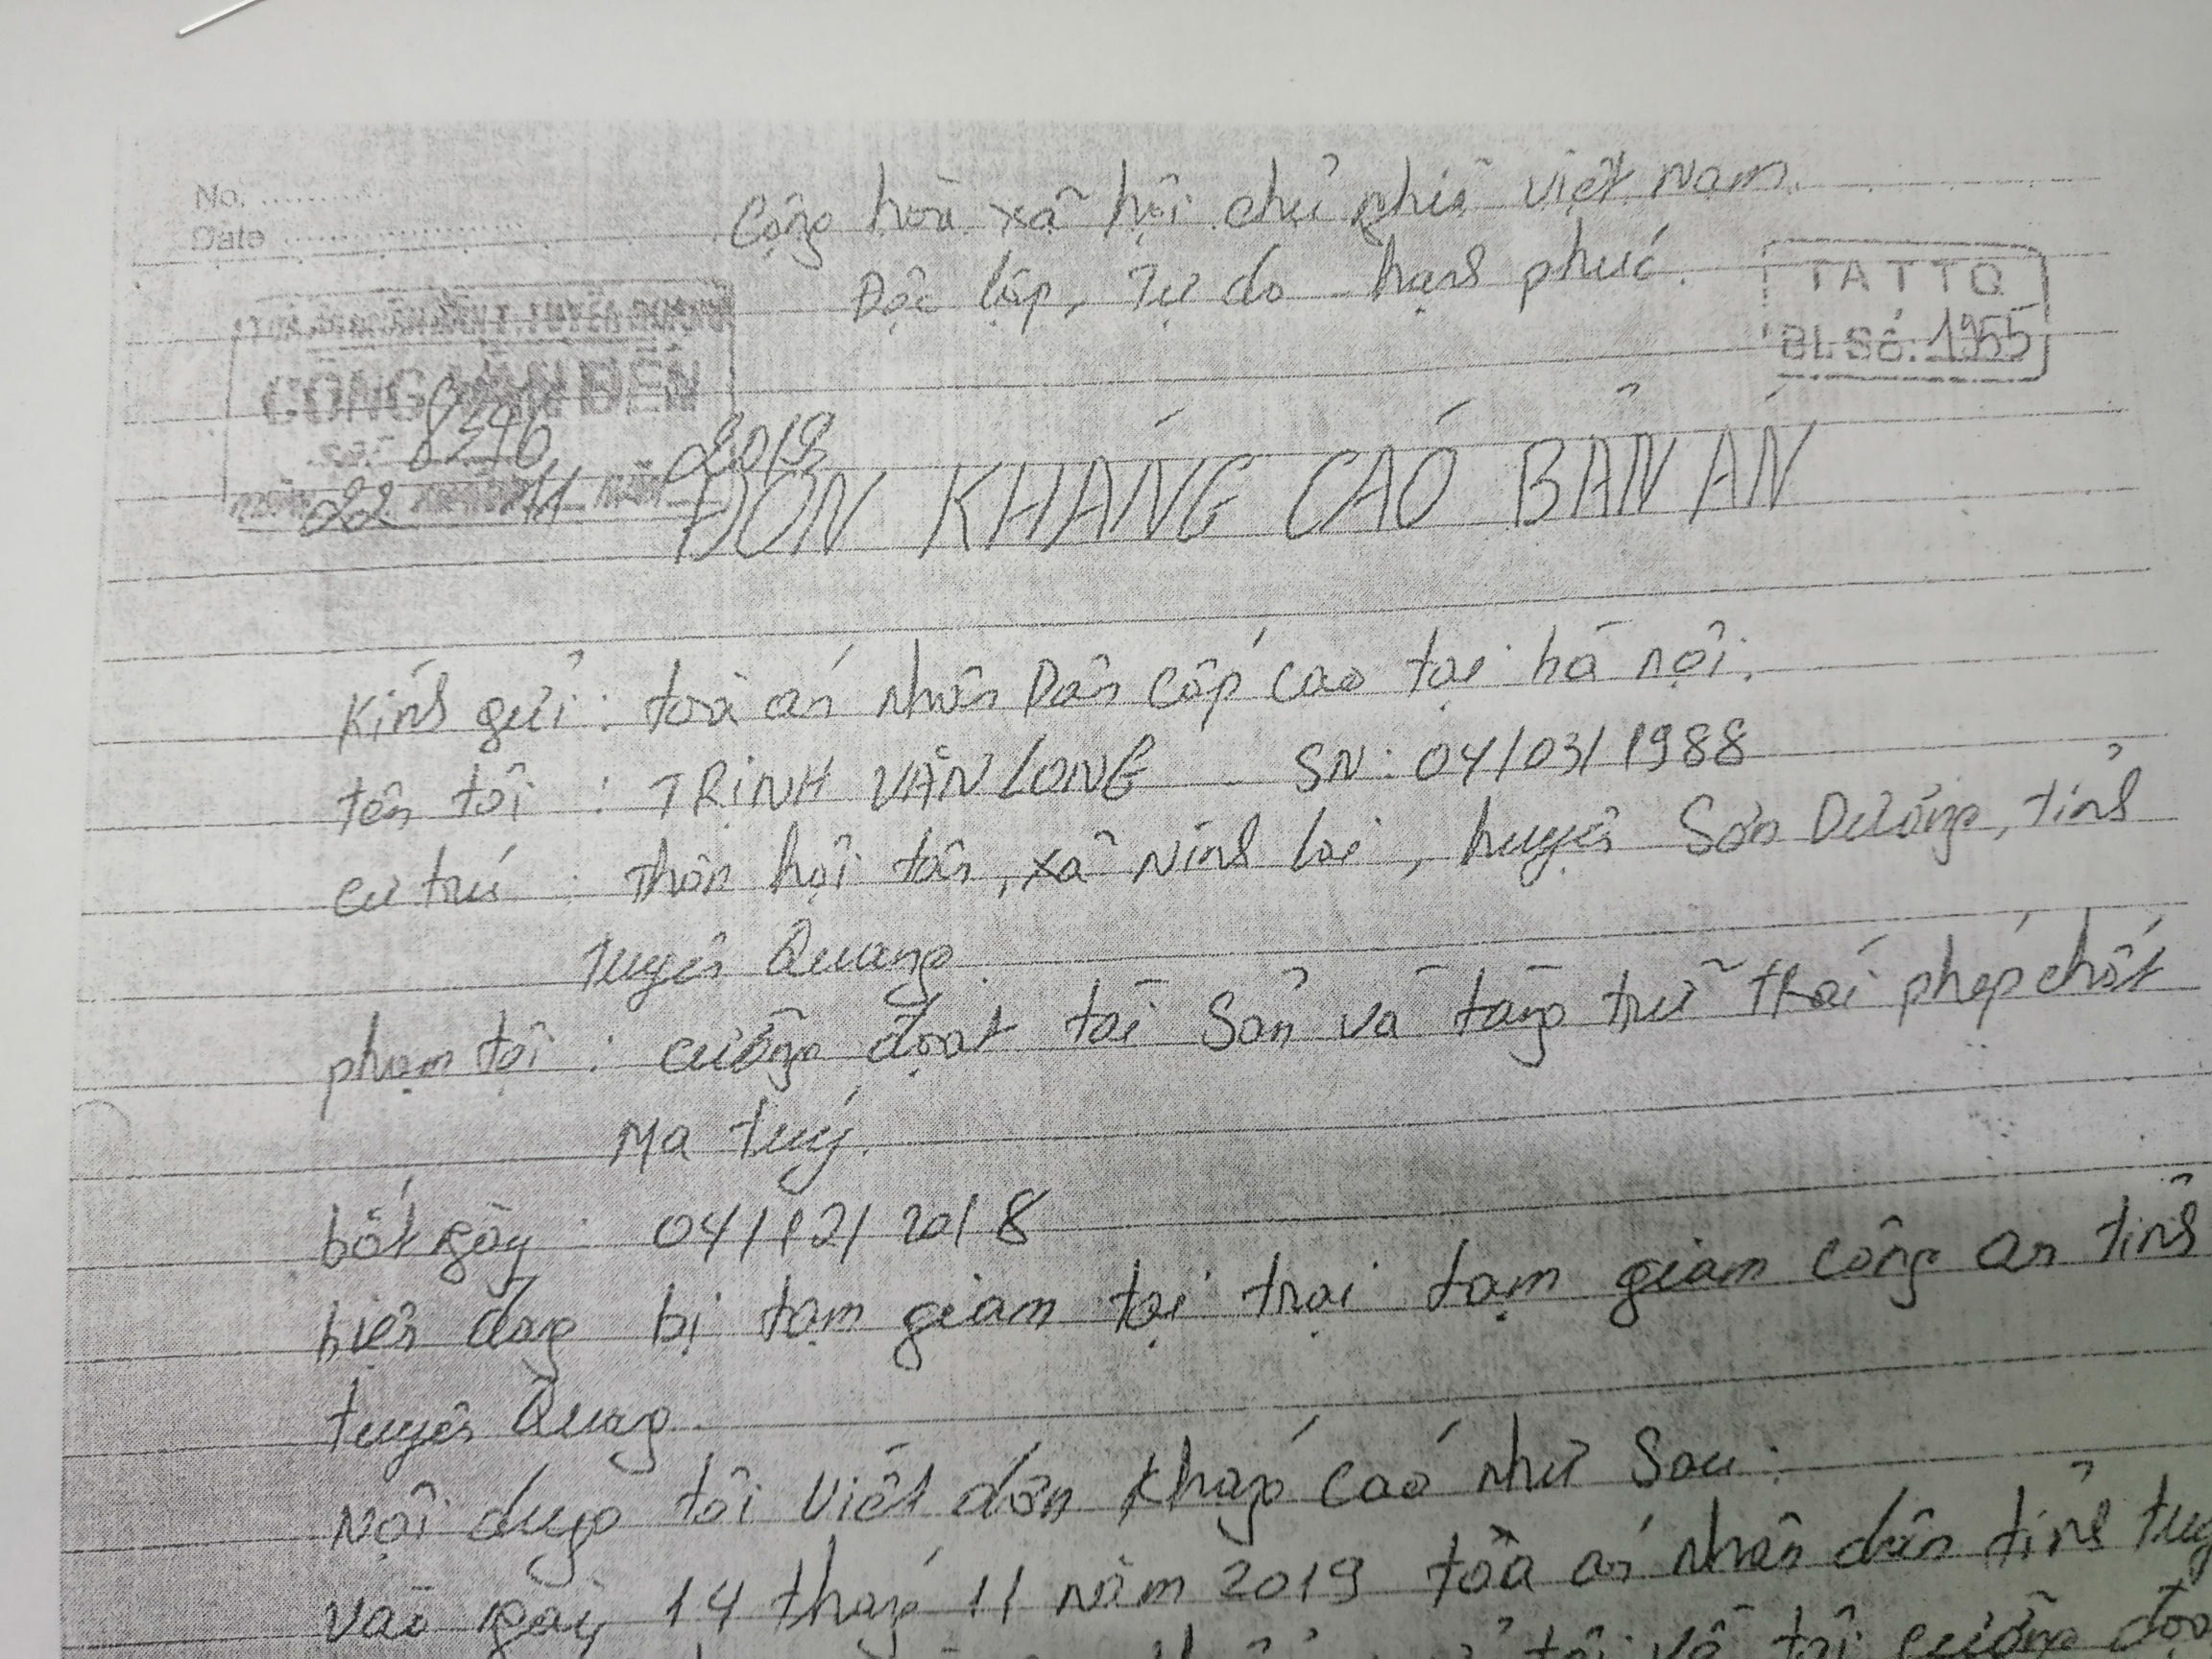 No. ..........
Date ....................
Cộng hoà xã hội chủ nghĩa việt nam.
Độc lập, Tự do hạnh phúc.
TATTQ
BL Số: 1955
CÔNG VĂN ĐẾN
22 11 2019
ĐƠN KHÁNG CÁO BẢN ÁN
Kính gửi : toà án nhân Dân Cấp Cao tại hà nội.
tên tôi : TRỊNH VĂN LONG SN: 04/03/1988
cư trú : Thôn hội tân, xã Ninh lai, huyện Sơn Dương, tỉnh
Tuyên Quang.
phạm tội : cưỡng đoạt tài Sản và tàng trữ trái phép chất
Ma tuý.
bắt ngày : 04/12/2018
hiện đang bị tạm giam tại trại tạm giam công an tỉnh
tuyên Quang.
Nội dung tôi viết đơn kháng cáo như Sau:
vào ngày 14 tháng 11 năm 2019 tòa án nhân dân tỉnh tuy
tôi về tội cưỡng đoạ